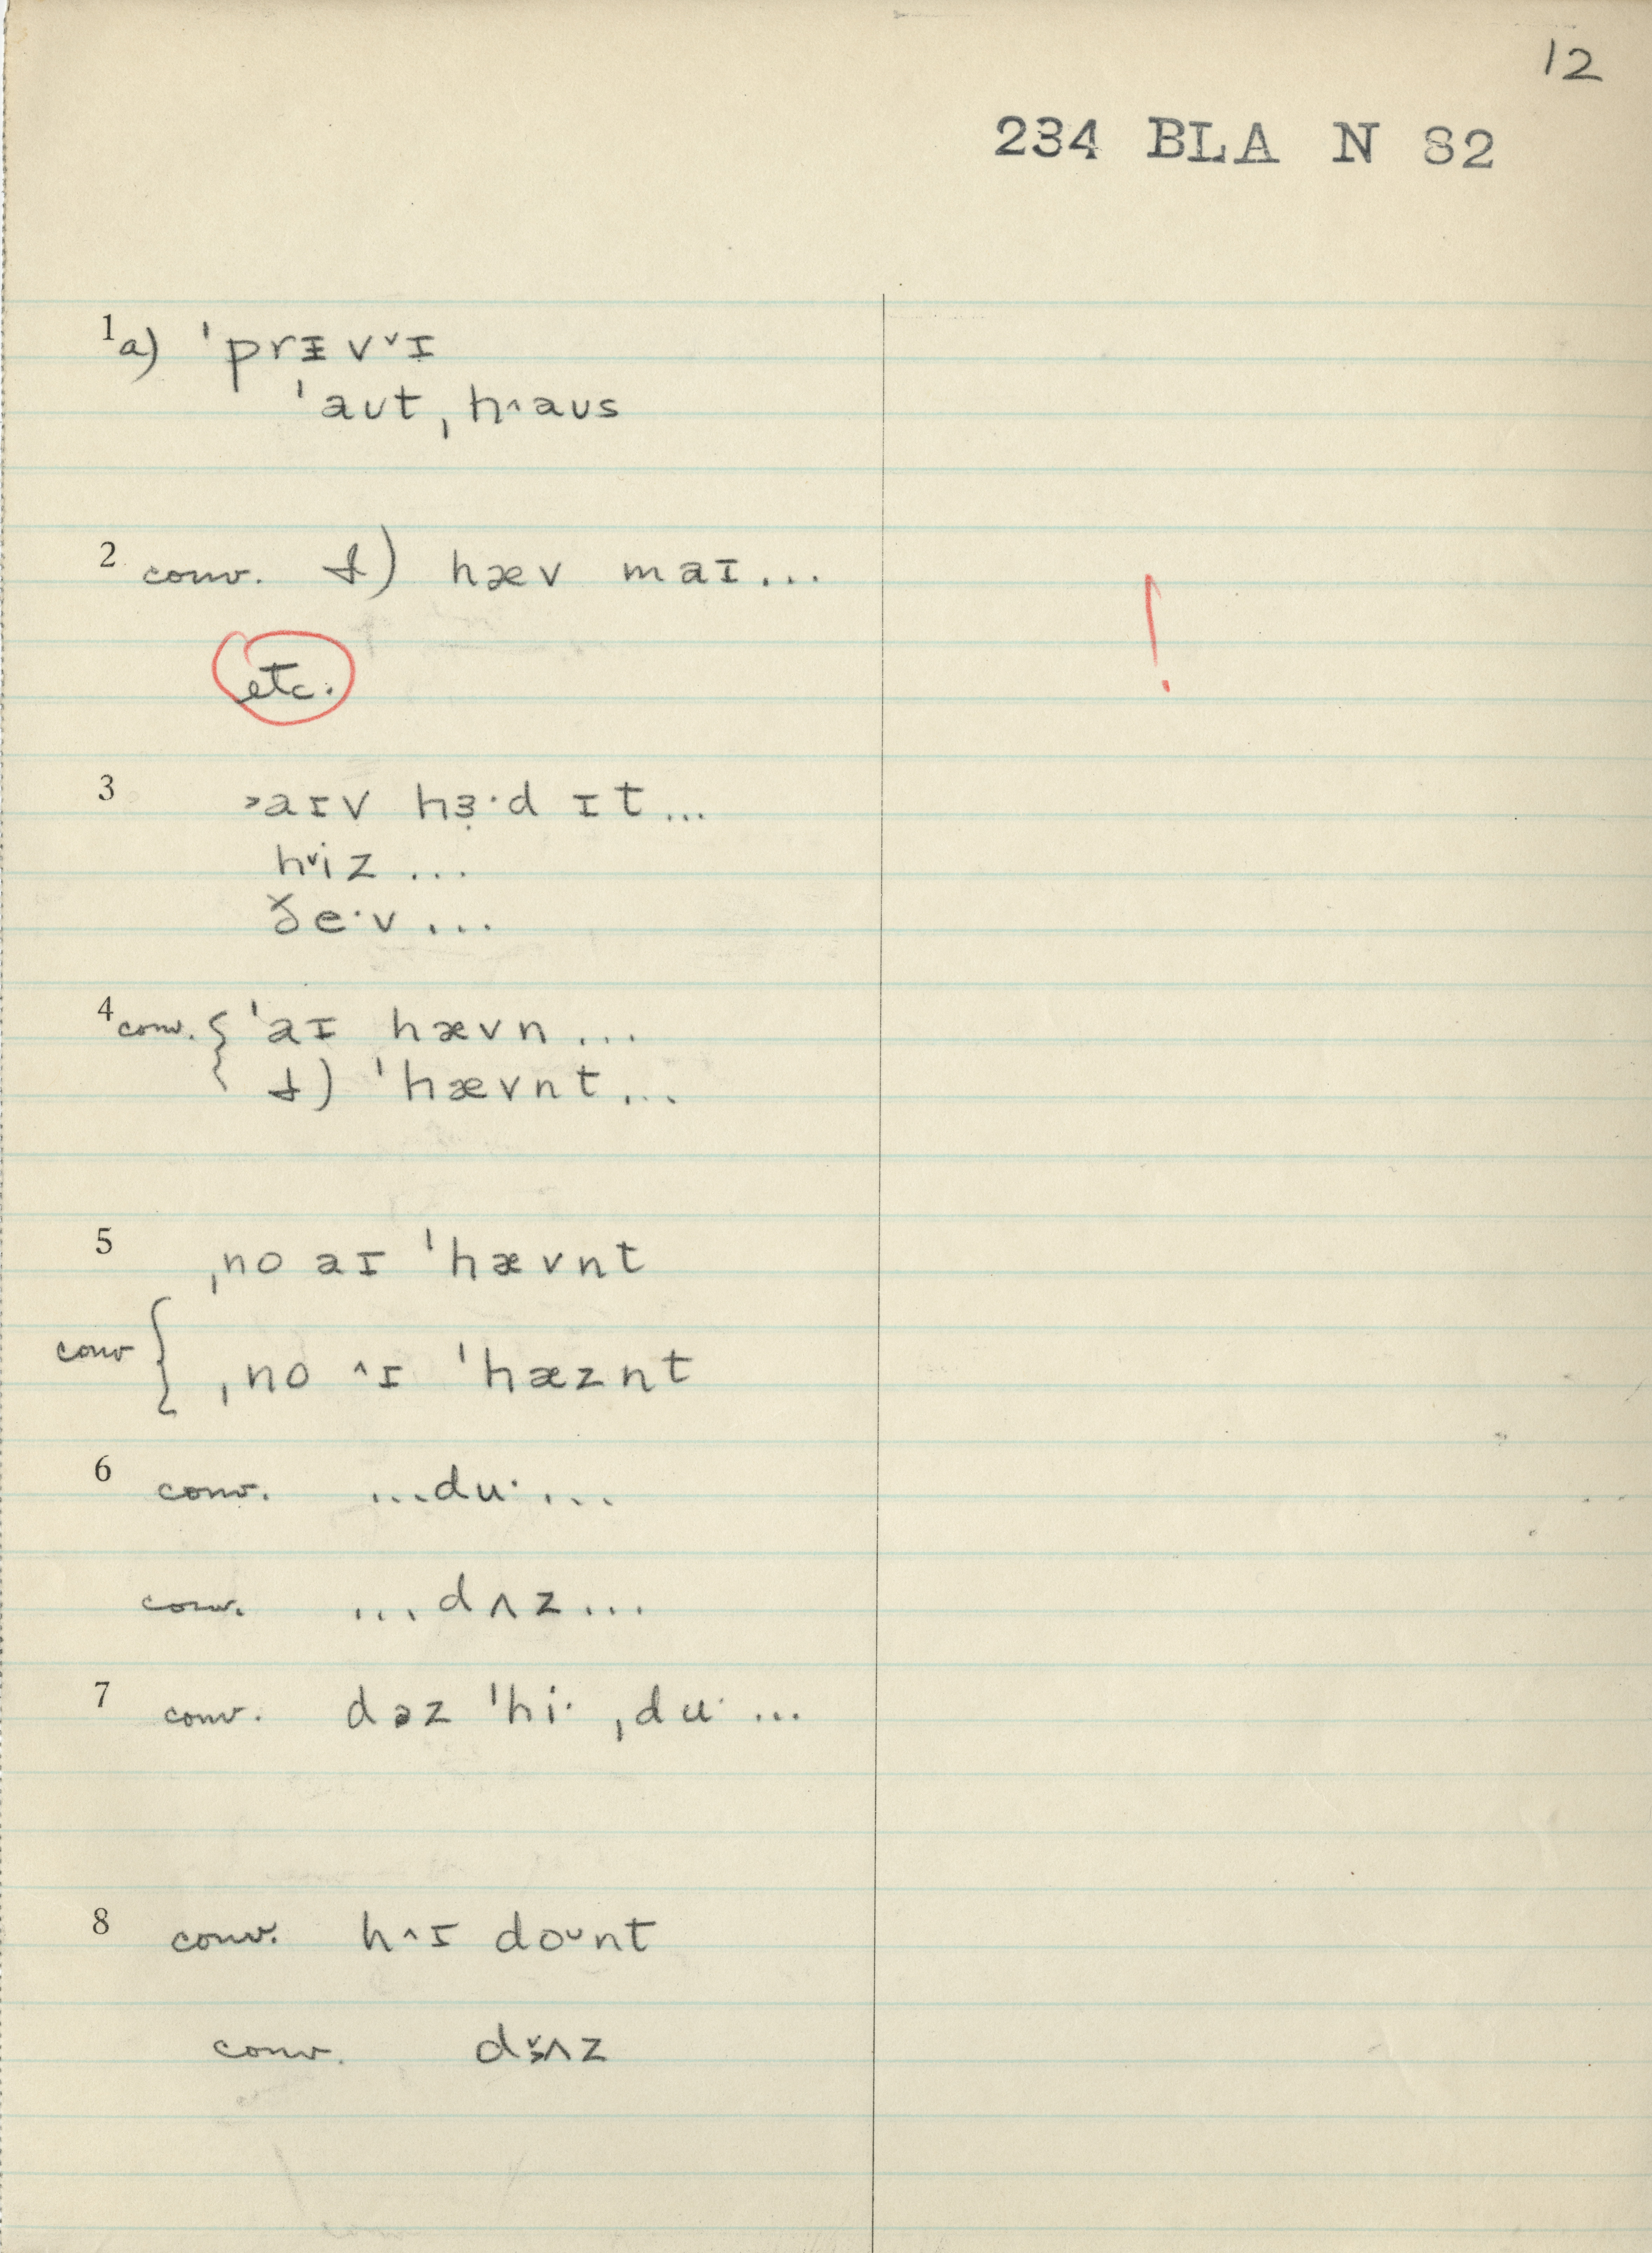 12
234 BLA N 82
1 a) ˈprɪ̵vᵛɪ
ˈaʊt ˌh˄aʊs
2 conv. hæv maɪ...
etc.
!
3 ˃aɪv hɜ̣·d ɪt...
h˅iz ...
ðe·v ...
4 conv. { ˈaɪ hævn ...
ˈhævnt ...
5 ˌno aɪ ˈhævnt
conv { ˌno ˄ɪ ˈhæznt
6 conv. ...du· ...
conv. ...dʌz...
7 conv. dəz ˈhi· ˌdu· ...
8 conv. h˄ɪ doᴜnt
conv.